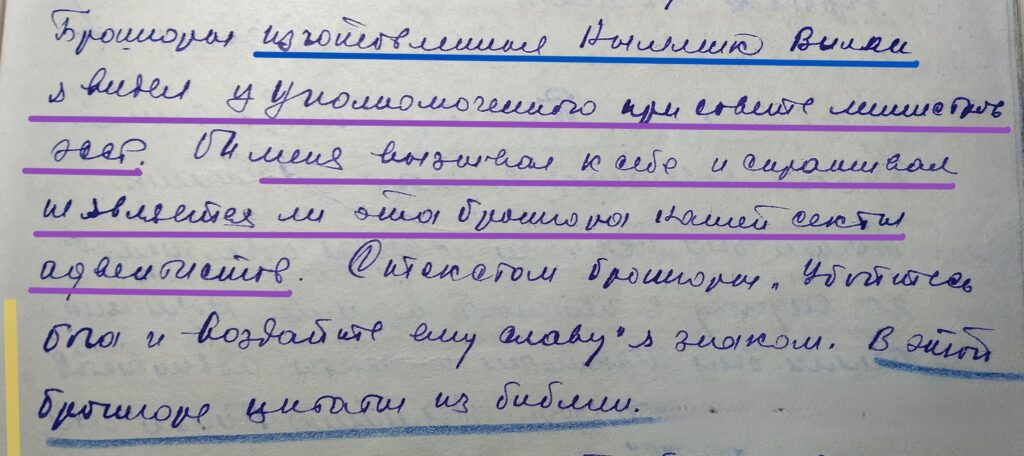 Брошюры изготовленная Кыллик Вилли
я видел у Уполномоченного при совете министров
эсср. Он меня вызывал к себе и спрашивал
не является ли эта брошюра нашей секты
адвентистов. С текстом брошюры „Убойтесь
бога и воздайте ему славу" я знаком. В этой
брошюре цитаты из библии.